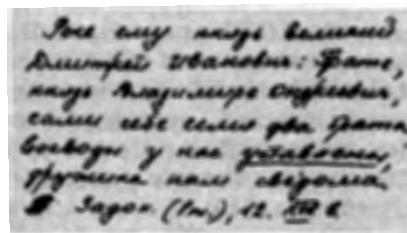 Рече ему князь великий
Дмитрей Иванович: Брате,
князь Владимере Ондреевич,
сами себе есмя два брата,
воеводы у нас уставлены,
дружина нам сведома.
Задон. (Ун.), 12. XVII в.